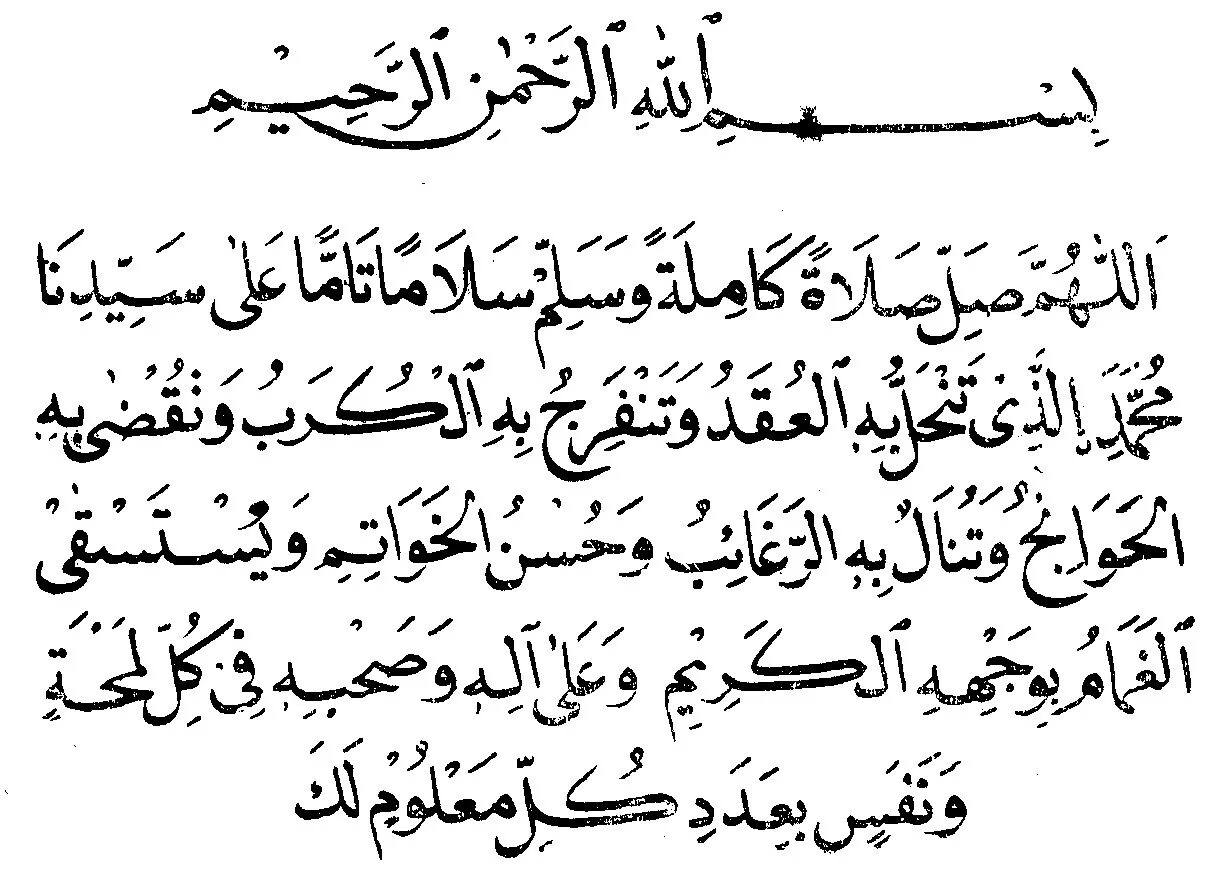 بِسْمِ اللّٰهِ الرَّحْمٰنِ الرَّحِيْمِ
اَللّٰهُمَّ صَلِّ صَلَاةً كَامِلَةً وَسَلِّمْ سَلَامًا تَامًّا عَلٰى سَيِّدِنَا
مُحَمَّدِ ۨالَّذِىْ تَنْحَلُّ بِهِ الْعُقَدُ وَتَنْفَرِجُ بِهِ الْكُرَبُ وَتُقْضٰى بِهِ
الْحَوَائِجُ وَتُنَالُ بِهِ الرَّغَائِبُ وَحُسْنُ الْخَوَاتِمِ وَيُسْتَسْقٰى
الْغَمَامُ بِوَجْهِهِ الْكَرِيْمِ وَعَلٰى آلِهِ وَصَحْبِهِ فِىْ كُلِّ لَمْحَةٍ
وَنَفَسٍ بِعَدَدِ كُلِّ مَعْلُوْمٍ لَكَ